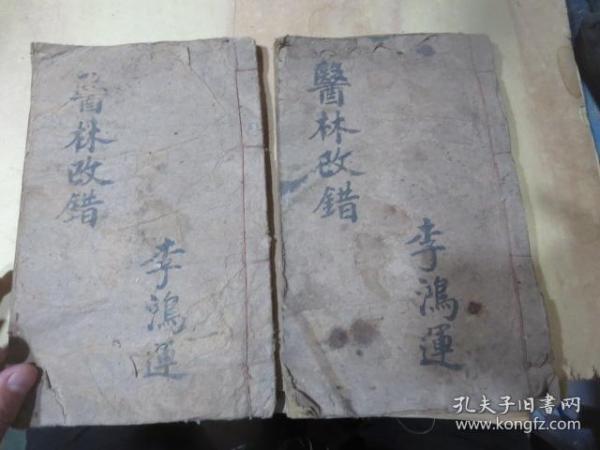 醫林改錯
李鴻運
醫林改錯
李鴻運
孔夫子旧書网
www.kongfz.com